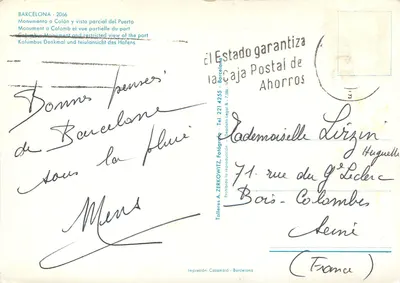 BARCELONA - 2016
Monumento a Colón y vista parcial del Puerto
Monument a Colomb et vue partielle du port
Columbus Monument and restricted view of the port
Kolumbus Denkmal und teilansicht des Hafens
El Estado garantiza
la Caja Postal de
Ahorros
Bonnes pensées
de Barcelone
sous la pluie
Talleres A. ZERKOWITZ, Fotógrafo - Tel. 221 4255 - Barcelona
Mademoiselle Lizzini
Huguette
71 rue du Gᵉ Leclerc
Bois-Colombes
Seine
(France)
Barcelona